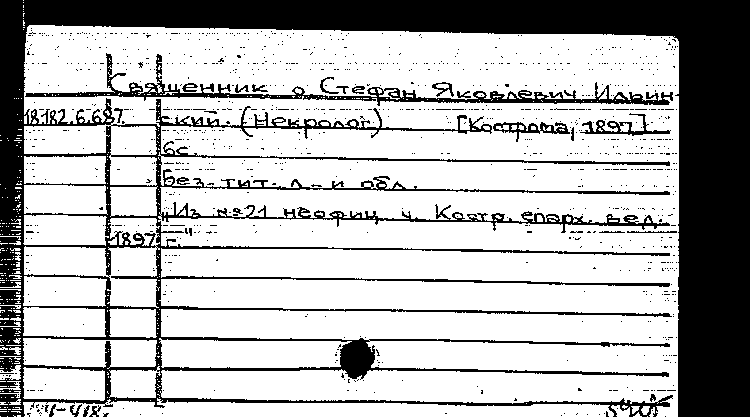 Священник о Стефан Яковлевич Ильин-
18.182.6.687. ский. (Некролог) [Кострома, 1897]
6с.
Без тит. л. и обл.
„Из №21 неофиц. ч. Костр. епарх. вед.
1897 г."